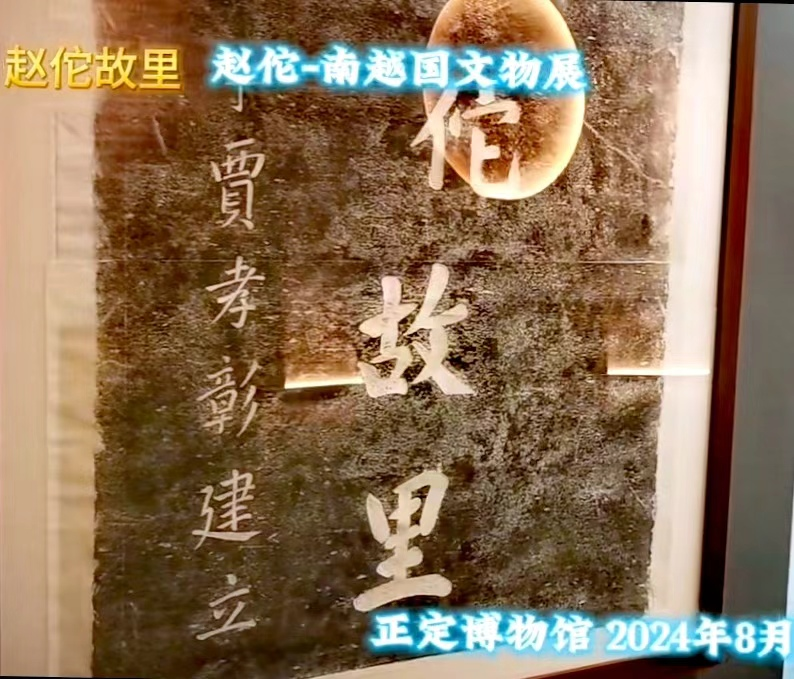 赵佗故里
赵佗-南越国文物展
佗故里
賈孝彰建立
正定博物馆 2024年8月